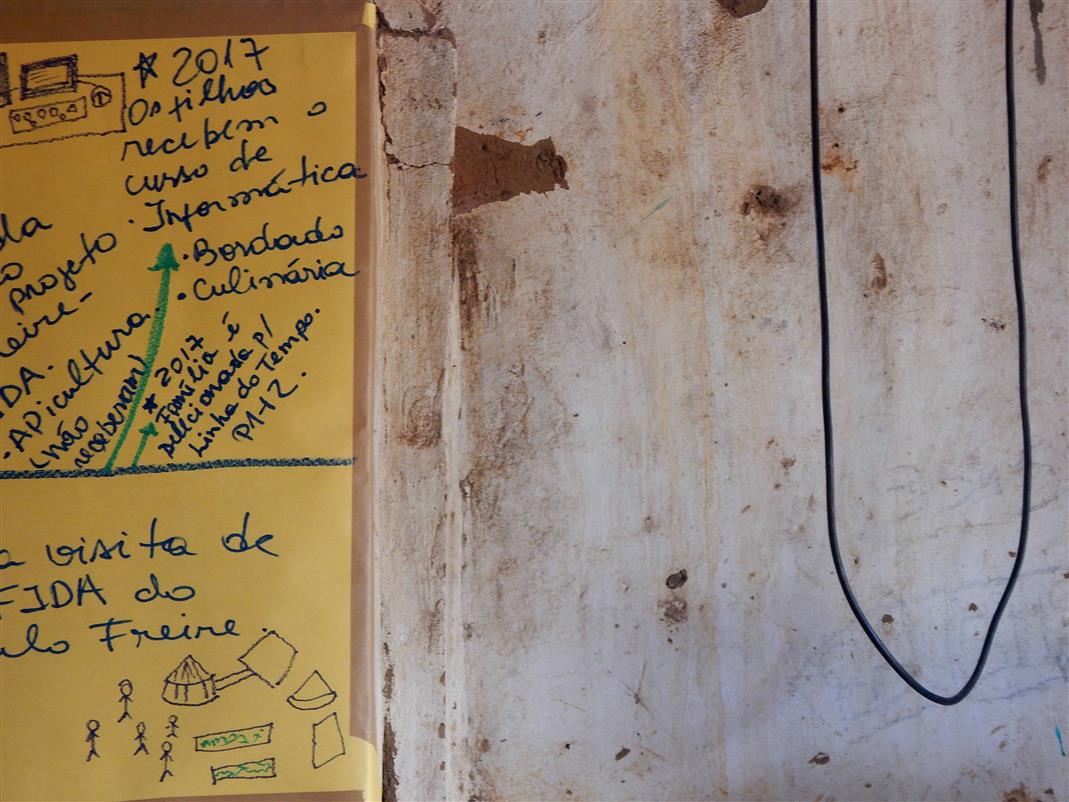 ★ 2017
Os filhos
recebem o
curso de
· Informática
· Bordado
· Culinária
projeto
· Apicultura
(não
receberam)
★ 2017
Família é
selecionada p/
Linha do Tempo.
P1+2.
a visita de
FIDA do
ulo Freire.